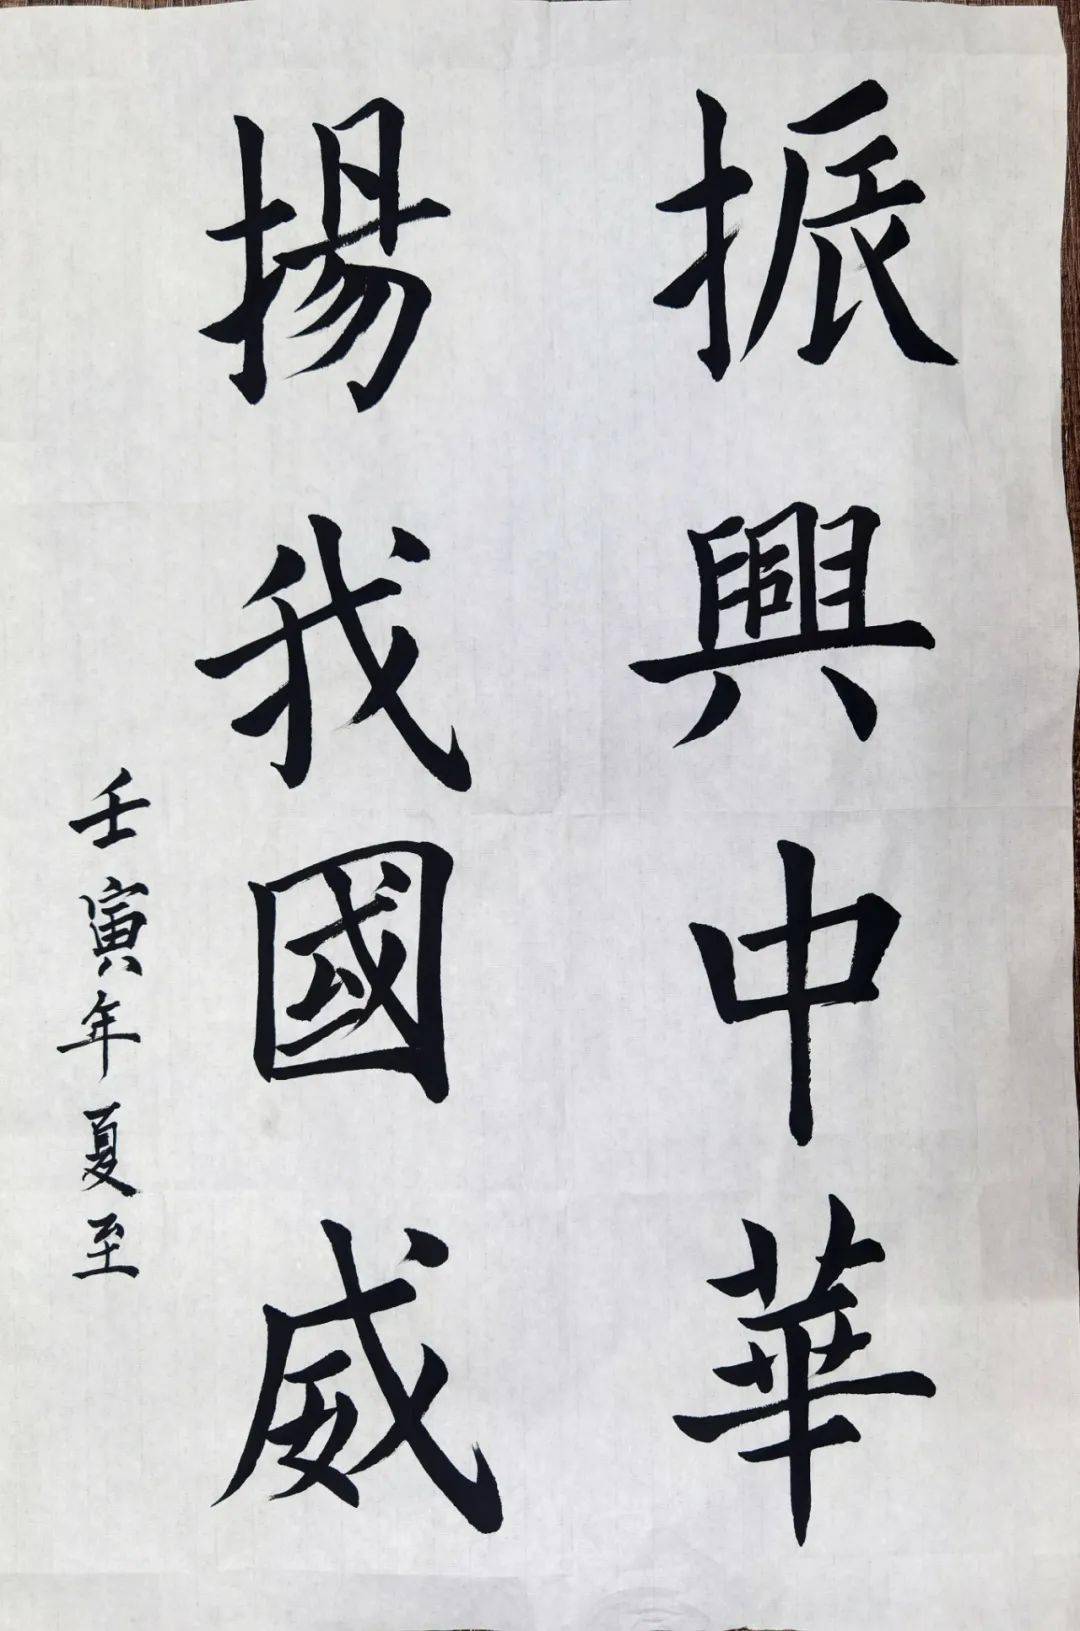 振興中華
揚我國威
壬寅年夏至